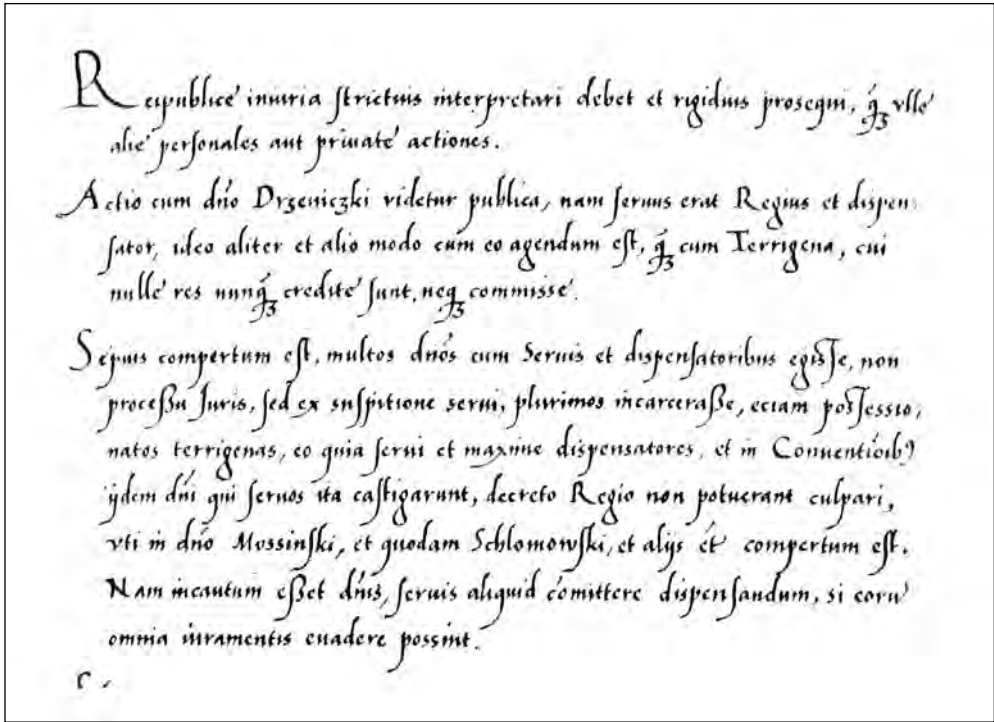 Reipublicę iniuria ſtrictius interpretari debet et rigidius prosequi, q́ꝫ vllę
alię perſonales aut priuatę actiones.
Actio cum dńo Drzeniczki videtur publica, nam ſeruus erat Regius et dispen-
ſator, ideo aliter et alio modo cum eo agendum eſt, q́ꝫ cum Terrigena, cui
nullę res nunq́ꝫ creditę ſunt, neqꝫ commissę.
Sępius compertum eſt, multos dnós cum Seruis et diſpenſatoribus egiſſe, non
proceßu Juris, ſed ex ſuſpitione serui, plurimos incarceraße, eciam poſſessio-
natos terrigenas, eo quia ſerui et maxime dispensatores, et in Conuentióibꝰ
ijdem dńi qui ſeruos ita caſtigarunt, decreto Regio non potuerant culpari,
vti in dńo Mossinſki, et quodam Schlomowſki, et alijs ét compertum eſt.
Nam incautum eßet dnís, ſeruis aliquid cómittere dispenſandum, si eorū
omnia iuramentis euadere possint.